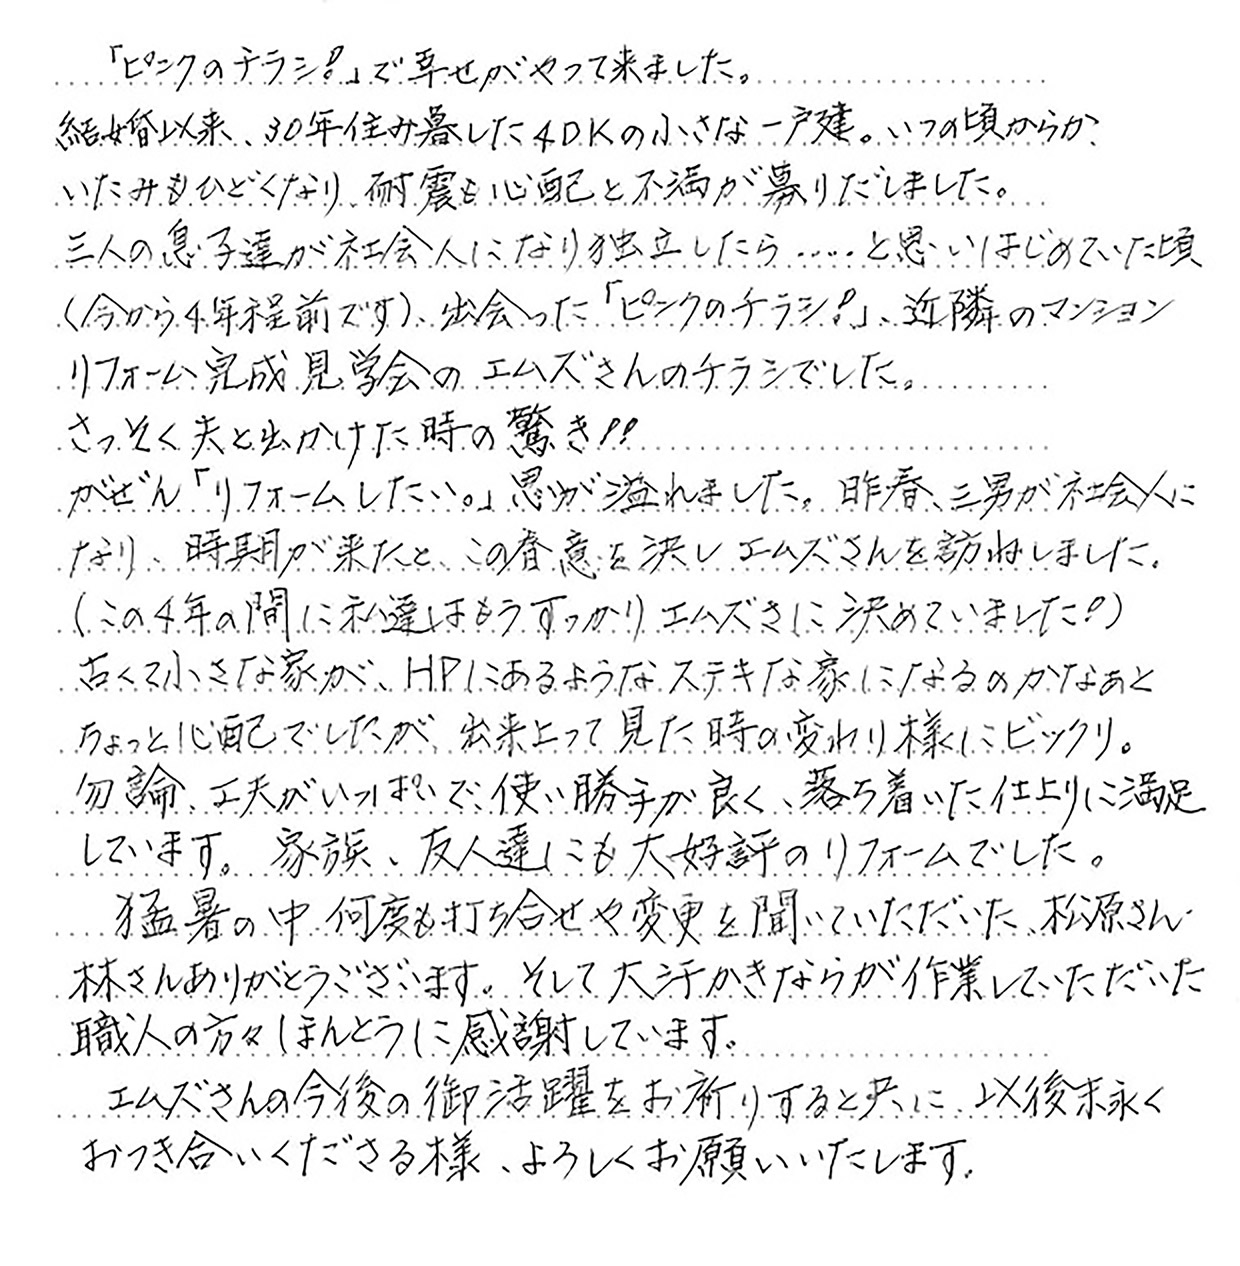 「ピンクのチラシ!」で幸せがやって来ました。
結婚以来、30年住み暮した4DKの小さな一戸建。いつの頃からか、
いたみもひどくなり、耐震も心配と不満が募りだしました。
三人の息子達が社会人になり独立したら.....と思いはじめていた頃
(今から4年程前です)、出会った「ピンクのチラシ!」、近隣のマンション
リフォーム完成見学会のエムズさんのチラシでした。
さっそく夫と出かけた時の驚き!!
がぜん「リフォームしたい。」思いが溢れました。昨春、三男が社会人に
なり、時期が来たと、この春意を決しエムズさんを訪ねしました。
(この4年の間に私達はもうすっかりエムズさに決めていました!)
古くて小さな家が、HPにあるようなステキな家になるのかなぁと
ちょっと心配でしたが、出来上って見た時の変わり様にビックリ。
勿論、工夫がいっぱいで、使い勝手が良く、落ち着いた仕上りに満足
しています。家族、友人達にも大好評のリフォームでした。
猛暑の中、何度も打ち合せや変更を聞いていただいた、松原さん・
林さんありがとうございます。そして大汗かきならが作業していただいた
職人の方々ほんとうに感謝しています。
エムズさんの今後の御活躍をお祈りすると共に、以後末永く
おつき合いくださる様、よろしくお願いいたします。